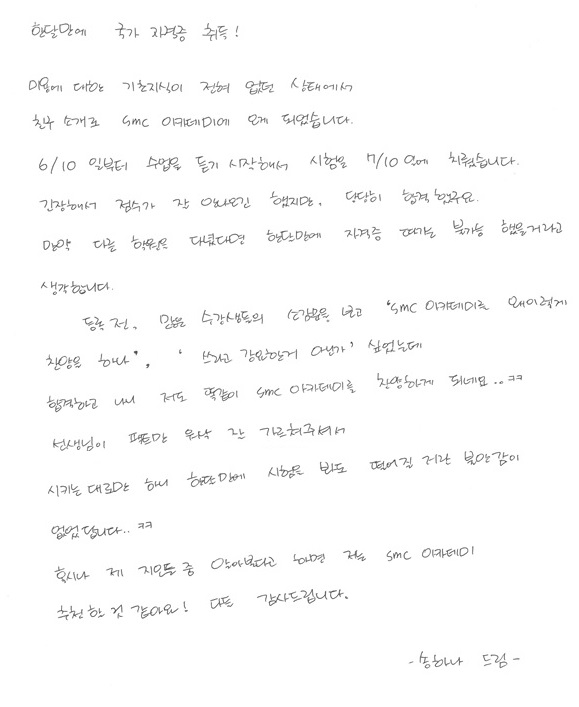 한달만에 국가 자격증 취득!
미용에 대한 기초지식이 전혀 없던 상태에서
친구 소개로 SMC 아카데미에 오게 되었습니다.
6/10 일부터 수업을 듣기 시작해서 시험을 7/10일에 치뤘습니다.
긴장해서 점수가 잘 안나오긴 했지만, 당당히 합격했구요.
만약 다른 학원을 다녔다면 한달만에 자격증 따기는 불가능 했을거라고
생각합니다.
등록 전, 많은 수강생들의 소감문을 보고 'SMC 아카데미를 왜이렇게
찬양을 하나', '쓰라고 강요한거 아닌가' 싶었는데
합격하고 나니 저도 똑같이 SMC 아카데미를 찬양하게 되네요..ㅋㅋ
선생님이 포인트만 워낙 잘 가르쳐주셔서
시키는 대로만 하니 한달만에 시험을 봐도 떨어질 거란 불안감이
없었답니다..ㅋㅋ
혹시나 제 지인들 중 알아본다고 하면 저는 SMC 아카데미
추천할 것 같아요! 다들 감사드립니다.
-송하나 드림-